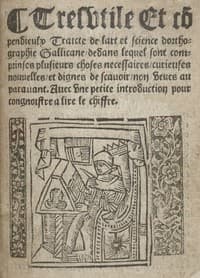 ❡ Tresvtile Et cõ
pendieulx Traicte de lart et science dortho-
graphie Gallicane dedans lequel sont com-
prinses plusieurs choses necessaires/curieuses
nouuelles/et dignes de scauoir non veues au
parauant. Auec Vne petite introduction pour
congnoistre a lire le chiffre.